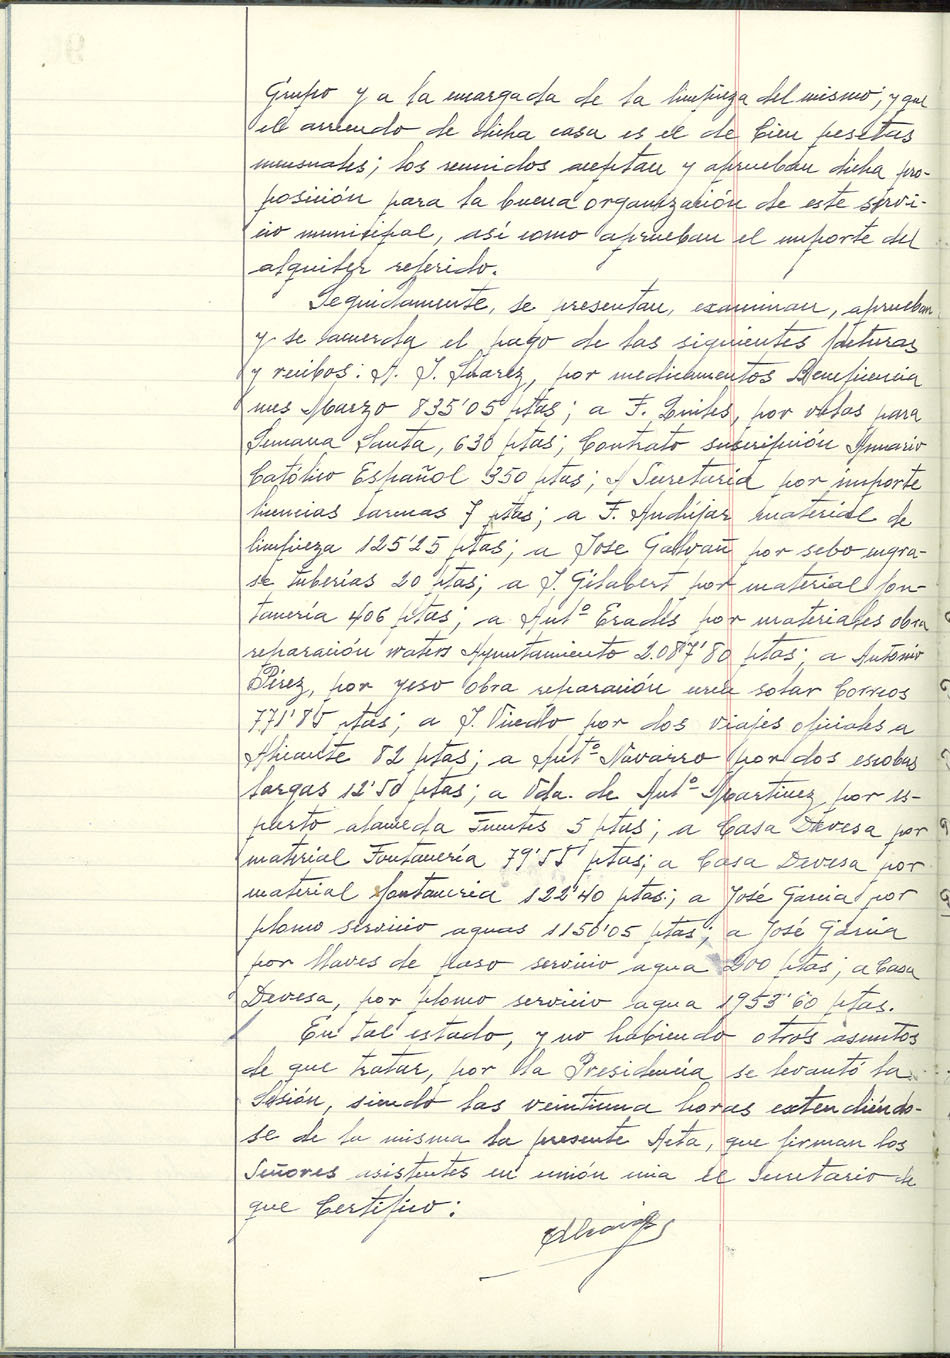 Grupo y a la encargada de la limpieza del mismo; y que
el arriendo de dicha casa es el de Cien pesetas
mensuales; los reunidos aceptan y aprueban dicha pro-
posición para la buena organización de este servi-
cio municipal, así como aprueban el importe del
alquiler referido.
Seguidamente, se presentan, examinan, aprueban
y se acuerda el pago de las siguientes facturas
y recibos: A. J. Suarez, por medicamentos Beneficencia
mes Marzo 835'05 ptas; a F. por velas para
Semana Santa, 630 ptas; Contrato suscripción Anuario
Católico Español 350 ptas; A Secretaría por importe
licencias armas 7 ptas; a F. Andújar material de
limpieza 125'25 ptas; a Jose Galvañ por sebo engra-
se tuberías 20 ptas; a J. Gilabert por material fon-
tanería 406 ptas; a Antº Erades por materiales obra
reparación waters Ayuntamiento 2.087'80 ptas; a Antonio
Pérez, por yeso obra reparación solar Correos
771'85 ptas; a J. por dos viajes oficiales a
Alicante 82 ptas; a Antº Navarro por dos escobas
largas 12'50 ptas; a Vda. de Antº Martinez por es-
parto alameda Fuentes 5 ptas; a Casa Devesa por
material Fontanería 79'55 ptas; a Casa Devesa por
material fontaneria 122'40 ptas.; a José Garcia por
plomo servicio aguas 1150'05 ptas; a José García
por llaves de paso servicio agua 200 ptas; a Casa
Devesa, por plomo servicio agua 1953'60 ptas.
En tal estado, y no habiendo otros asuntos
de que tratar, por la Presidencia se levantó la
Sesión, siendo las veintiuna horas extendiéndo-
se de la misma la presente Acta, que firman los
Señores asistentes en unión mia el Secretario de
que Certifico: